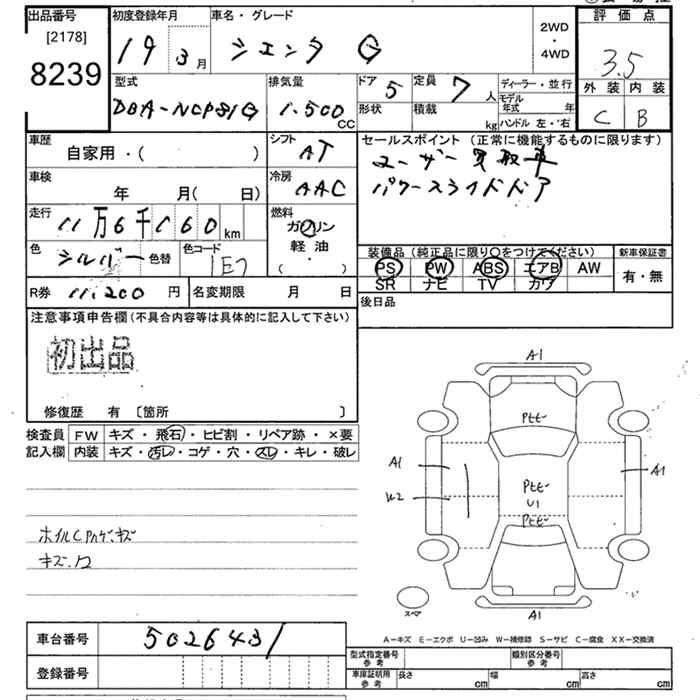 出品番号
[2178]
8239
初度登録年月
19 3月
車名・グレード
シエンタ G
2WD
・
4WD
評価点
3.5
外装 内装
C B
型式
DBA-NCP81G
排気量
1.500 CC
ドア 5
形状
定員 7人
積載 kg
ディーラー・並行
モデル年式 年
ハンドル 左・右
車歴
自家用・( )
シフト
AT
車検
年 月( 日)
冷房
AAC
走行
11万6千160km
燃料
ガソリン
軽油
・( )
色 シルバー 色替
色コード 1E7
R券 11.200円
名変期限 月 日
セールスポイント (正常に機能するものに限ります)
ユーザー買取車
パワースライドドア
装備品(純正品に限り○をつけてください)
PS PW ABS エアB AW
SR ナビ TV カワ
新車保証書
有・無
後日品
注意事項申告欄(不具合内容等は具体的に記入して下さい)
初出品
修復歴 有 〔箇所 〕
検査員記入欄
FW キズ・飛石・ヒビ割・リペア跡・×要
内装 キズ・汚レ・コゲ・穴・スレ・キレ・破レ
キズ.
A1
A1
U1
A1
A1
スペア
A-キズ E-エクボ U-凹み W-補修跡 S-サビ C-腐食 XX-交換済
車台番号
5026431
登録番号
型式指定番号 参考
類別区分番号 参考
車庫証明用 参考
長さ cm
幅 cm
高さ cm